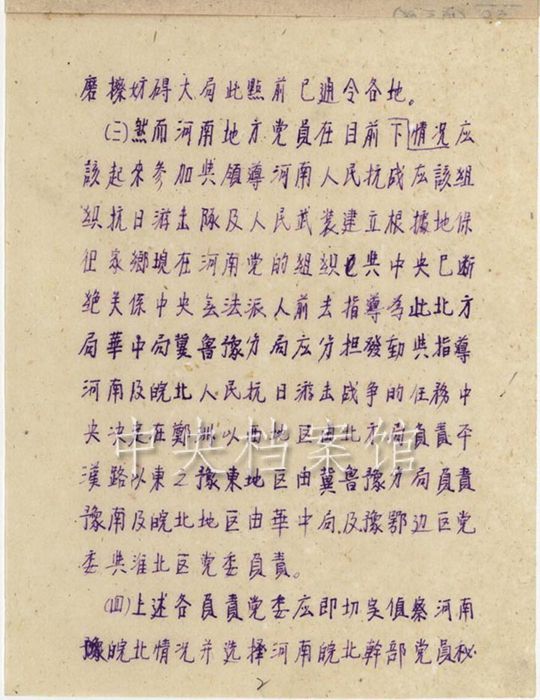 磨擦妨碍大局此點前已通令各地。
(三)然而河南地方党員在目前下情况应
該起來参加與領導河南人民抗战应該組
織抗日游击隊及人民武装建立根據地保
衽家鄉現在河南党的組織已與中央已断
绝关係中央無法派人前去指導為此北方
局華中局冀魯豫分局应分担發動與指導
河南及皖北人民抗日游击战争的任務中
央决定在鄭州以西地区由北方局負責平
漢路以東之豫東地区由冀魯豫分局負責
豫南及皖北地区由華中局及豫鄂边区党
委與淮北区党委負責。
(四)上述各負責党委应即切实偵察河南
皖北情况并选擇河南皖北幹部党員秘
2
中央档案馆